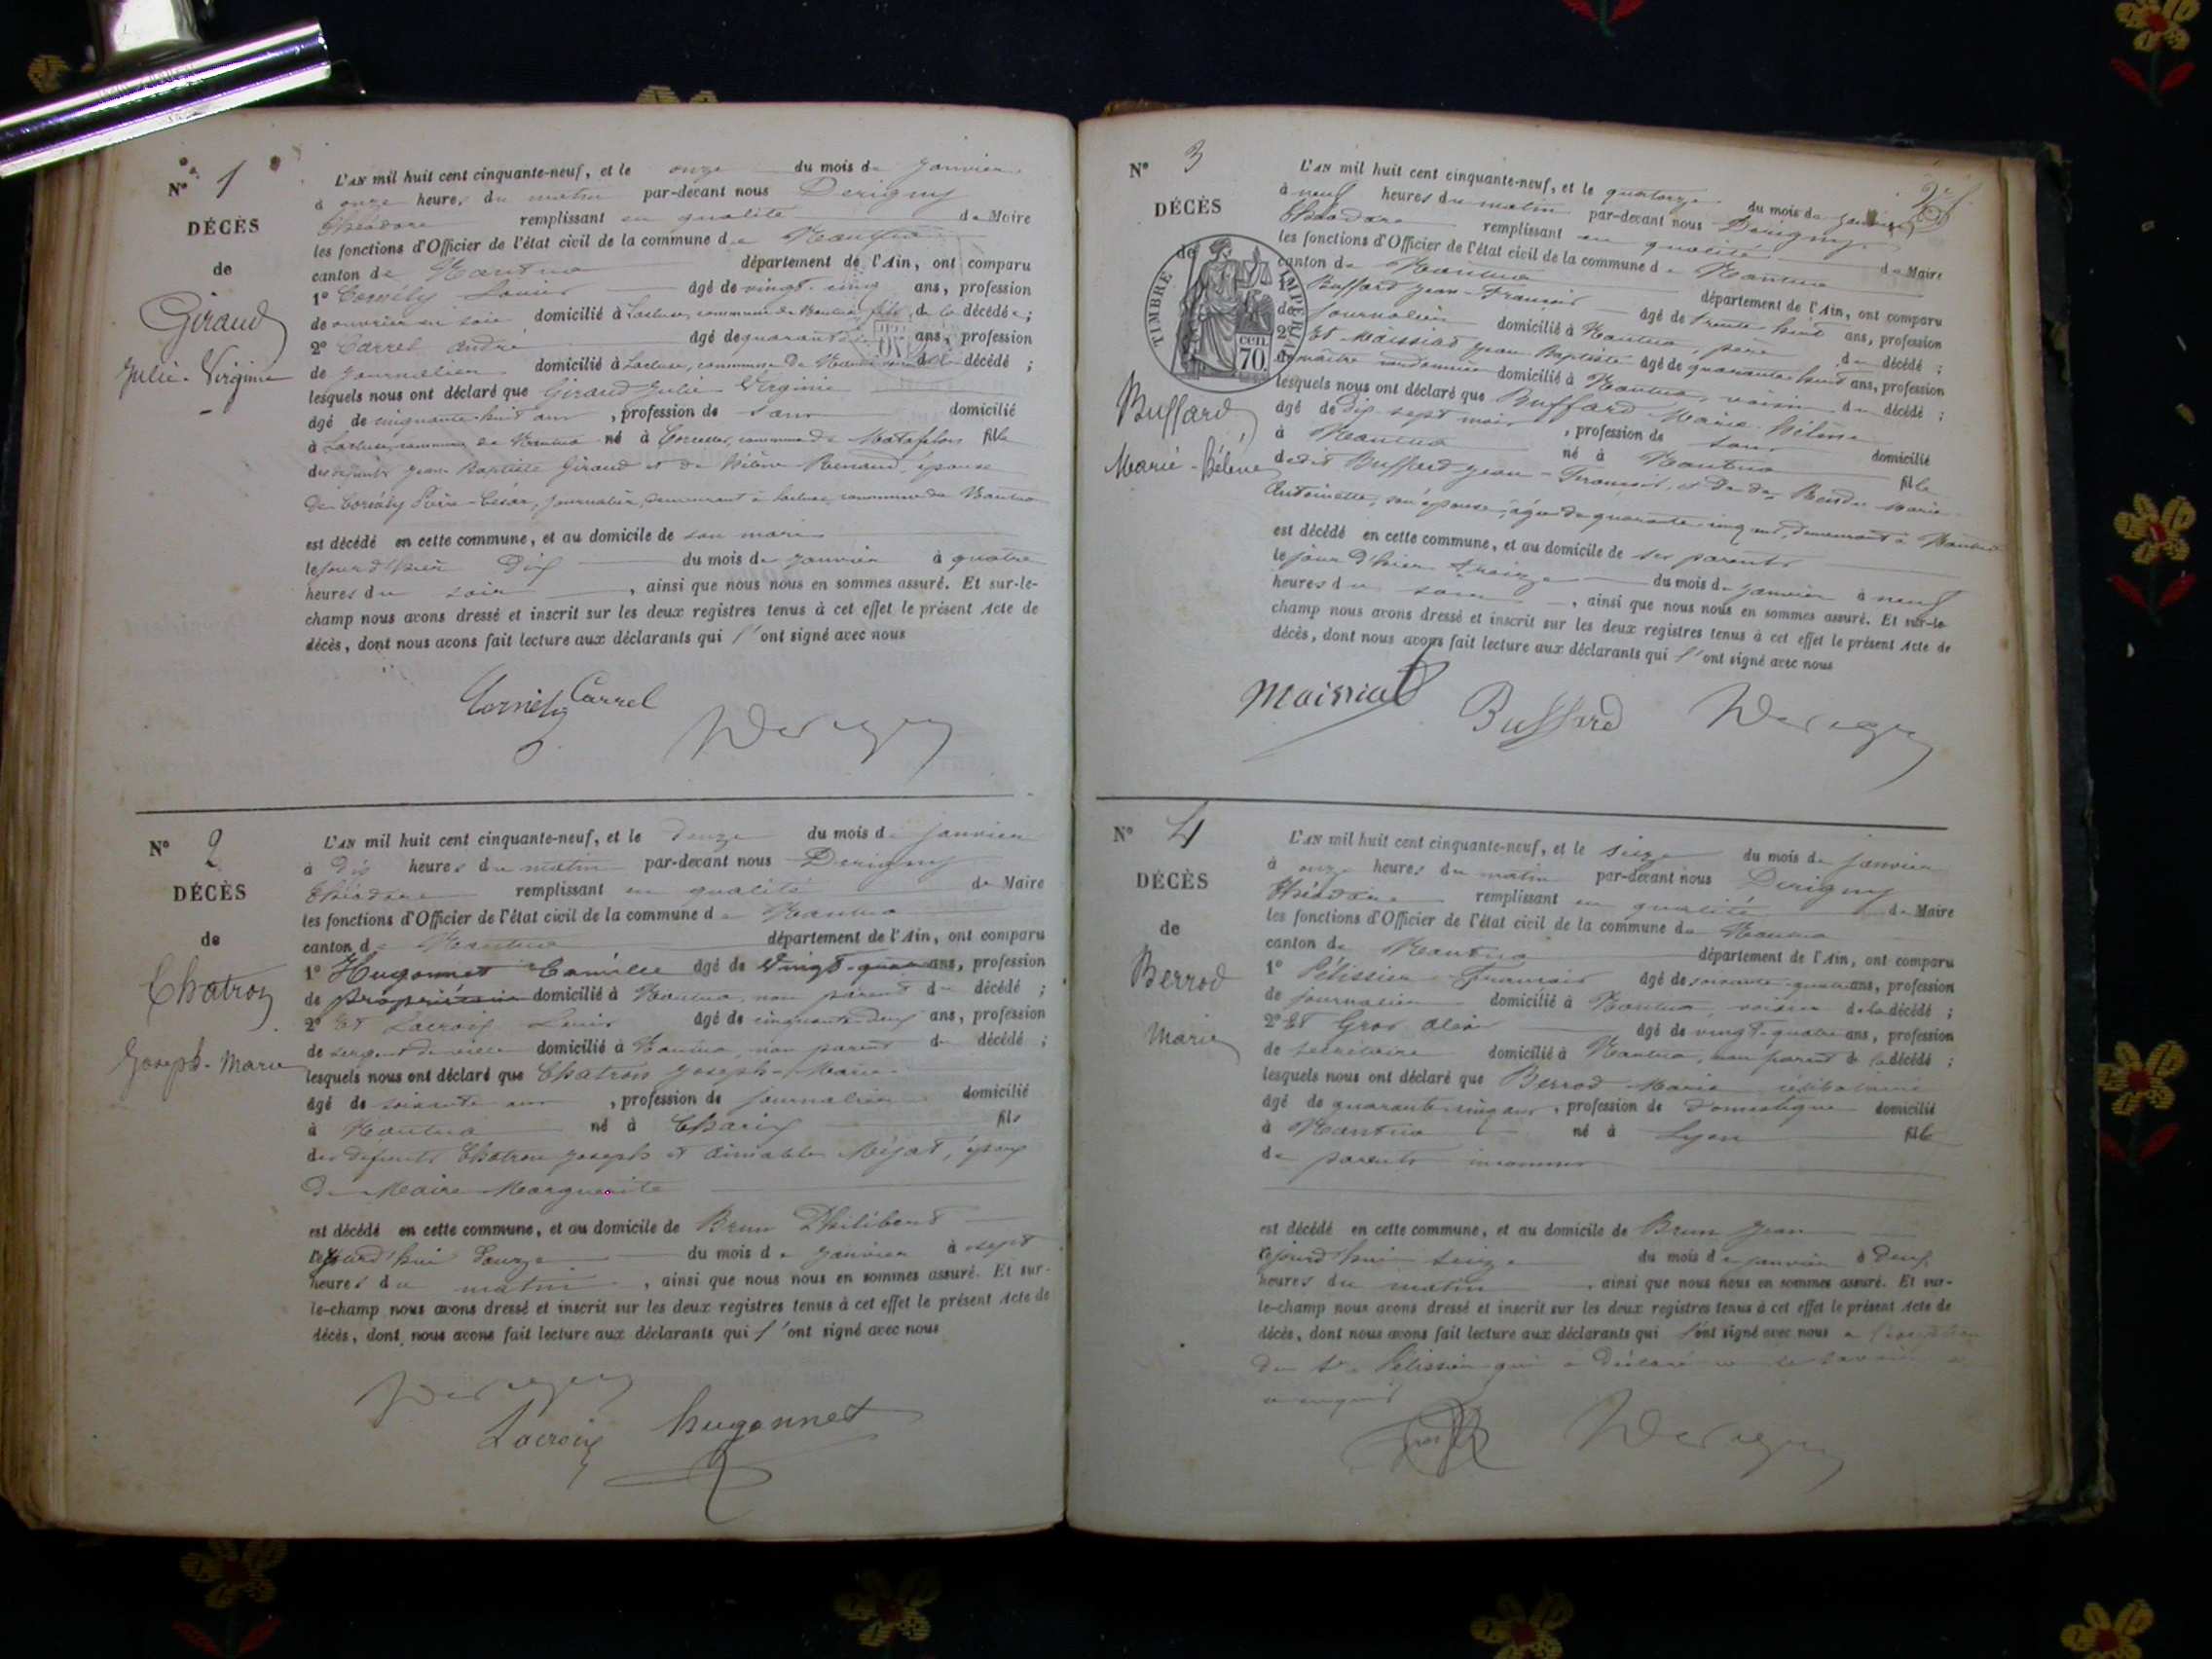 N° 1
DÉCÈS
de
Giraud
Julie-Virginie
L'AN mil huit cent cinquante-neuf, et le onze du mois de janvier
à onze heures du matin par-devant nous Derigny
Théodore remplissant en qualité de Maire
les fonctions d'Officier de l'état civil de la commune de Nantua
canton de Nantua département de l'Ain, ont comparu
1° Cornély Louis âgé de vingt-cinq ans, profession
de ouvrier en soie domicilié à Lacluse, commune de Nantua fils de la décédée;
2° Carrel André âgé de quarante ans, profession
de journalier domicilié à Lacluse, commune de Nantua décédé ;
lesquels nous ont déclaré que Giraud Julie Virginie
âgé de cinquante-huit ans , profession de sans domicilié
à Lacluse, commune de Nantua né à Corcelles, commune de Matafelon fille
des défunts Jean Baptiste Giraud et de Hélène Renaud, épouse
de Cornély Pierre-César, journalier, demeurant à Lacluse, commune de Nantua
est décédé en cette commune, et au domicile de son mari
le jour d'hier dix du mois de janvier à quatre
heures du soir , ainsi que nous nous en sommes assuré. Et sur-le-
champ nous avons dressé et inscrit sur les deux registres tenus à cet effet le présent Acte de
décès, dont nous avons fait lecture aux déclarants qui l'ont signé avec nous
Cornély Carrel
Derigny
N° 2
DÉCÈS
de
Chatron
Joseph-Marie
L'AN mil huit cent cinquante-neuf, et le douze du mois de janvier
à dix heures du matin par-devant nous Derigny
Théodore remplissant en qualité de Maire
les fonctions d'Officier de l'état civil de la commune de Nantua
canton de Nantua département de l'Ain, ont comparu
1° Hugonnet Camille âgé de vingt-quatre ans, profession
de propriétaire domicilié à Nantua, non parent du décédé ;
2° Et Lacroix Louis âgé de cinquante-deux ans, profession
de sergent de ville domicilié à Nantua, non parent du décédé ;
lesquels nous ont déclaré que Chatron Joseph-Marie
âgé de soixante ans , profession de journalier domicilié
à Nantua né à Charix fils
des défunts Chatron Joseph et Aimable Méjat, époux
de Maire Marguerite
est décédé en cette commune, et au domicile de Brun Philibert
cejourd'hui douze du mois de janvier à sept
heures du matin , ainsi que nous nous en sommes assuré. Et sur-
le-champ nous avons dressé et inscrit sur les deux registres tenus à cet effet le présent Acte de
décès, dont nous avons fait lecture aux déclarants qui l'ont signé avec nous
Derigny
Lacroix hugonnet
N° 3
DÉCÈS
de
TIMBRE IMPÉRIAL
70 cen.
Buffard
Marie-Hélène
L'AN mil huit cent cinquante-neuf, et le quatorze du mois de janvier
à neuf heures du matin par-devant nous Derigny
Théodore remplissant en qualité de Maire
les fonctions d'Officier de l'état civil de la commune de Nantua
canton de Nantua département de l'Ain, ont comparu
1° Buffard Jean-François âgé de trente-huit ans, profession
de journalier domicilié à Nantua, père du décédé ;
2° Et Maissiat Jean-Baptiste âgé de quarante-huit ans, profession
de maître cordonnier domicilié à Nantua, voisin du décédé ;
lesquels nous ont déclaré que Buffard Marie-Hélène
âgé de dix-sept mois , profession de sans domicilié
à Nantua né à Nantua fille
dudit Buffard Jean-François, et de Marie
Antoinette, son épouse, âgée de quarante-cinq ans, demeurant à Nantua
est décédé en cette commune, et au domicile de ses parents
le jour d'hier treize du mois de janvier à neuf
heures du soir , ainsi que nous nous en sommes assuré. Et sur-le-
champ nous avons dressé et inscrit sur les deux registres tenus à cet effet le présent Acte de
décès, dont nous avons fait lecture aux déclarants qui l'ont signé avec nous
Maissiat Buffard Derigny
N° 4
DÉCÈS
de
Berrod
Marie
L'AN mil huit cent cinquante-neuf, et le seize du mois de janvier
à onze heures du matin par-devant nous Derigny
Théodore remplissant en qualité de Maire
les fonctions d'Officier de l'état civil de la commune de Nantua
canton de Nantua département de l'Ain, ont comparu
1° Pélissier François âgé de soixante-quatre ans, profession
de journalier domicilié à Nantua, voisin de la décédé ;
2° Et Gros Alexis âgé de vingt-quatre ans, profession
de secrétaire domicilié à Nantua, non parent de la décédé ;
lesquels nous ont déclaré que Berrod Marie célibataire
âgé de quarante-cinq ans, profession de domestique domicilié
à Nantua né à Lyon fille
de parents inconnus
est décédé en cette commune, et au domicile de Brun Jean
cejourd'hui seize du mois de janvier à deux
heures du matin , ainsi que nous nous en sommes assuré. Et sur-
le-champ nous avons dressé et inscrit sur les deux registres tenus à cet effet le présent Acte de
décès, dont nous avons fait lecture aux déclarants qui l'ont signé avec nous à l'exception
du Sr Pélissier qui a déclaré ne le savoir
Gros Derigny